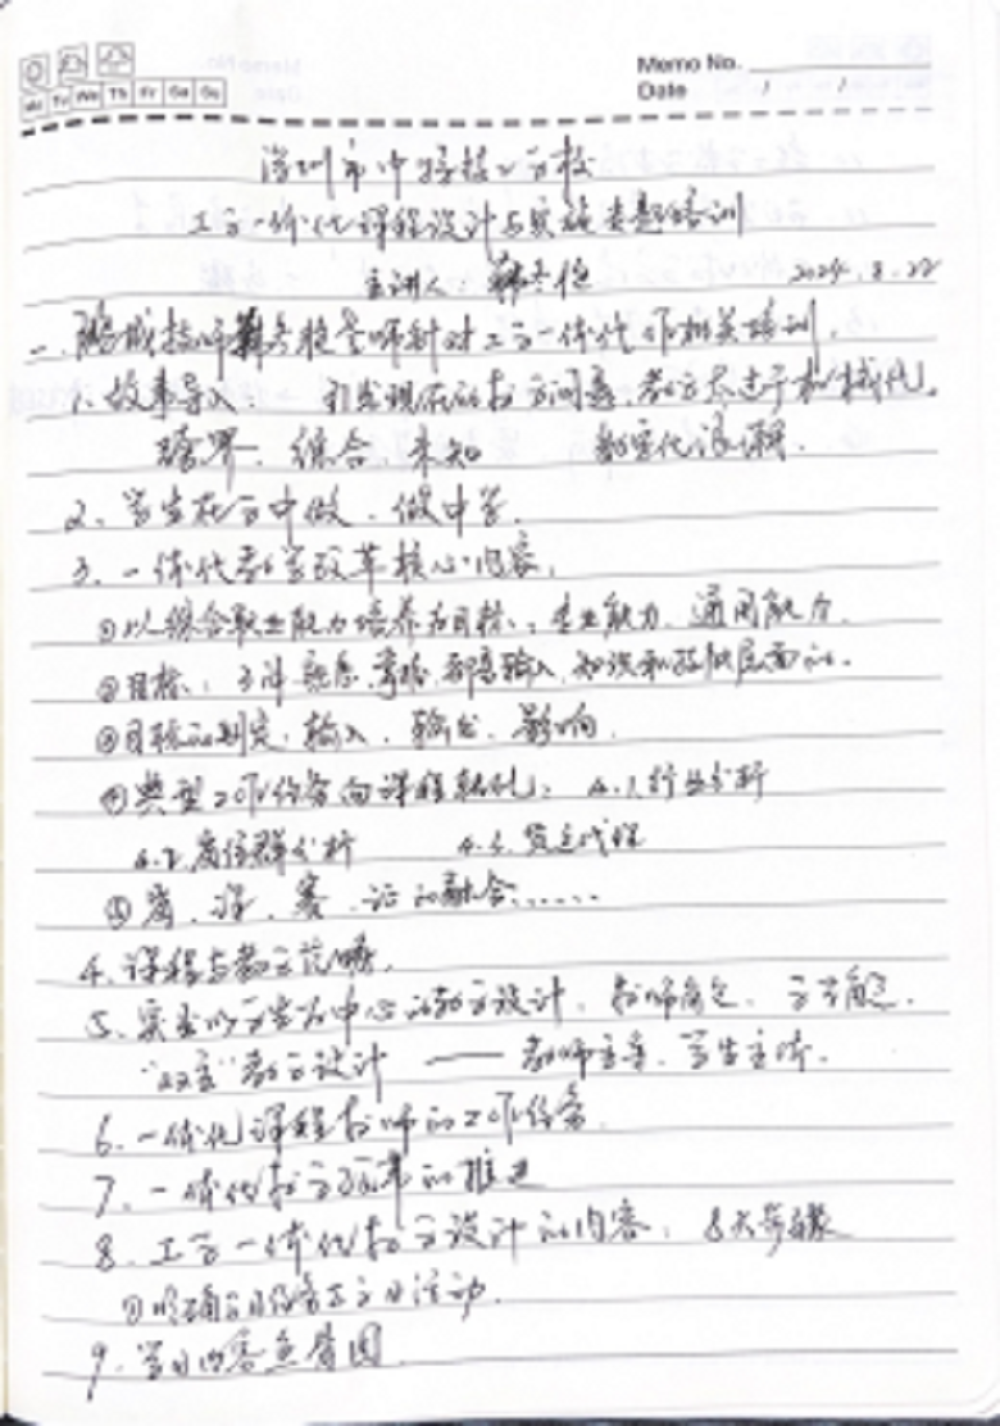 Memo No.
Date / /
Mo Tu We Th Fr Sa Su
深圳市中特技工学校
工学一体化课程设计与实施专题培训
主讲人: 2024.8.22
一. 鹏城技师 老师针对工学一体化作相关培训.
1. 故事导入: 引发现在的教学问题, 教学太过于机械化.
跨界. 综合. 未知
2. 学生在学中做. 做中学.
3. 一体化教学改革核心内容.
①以综合职业能力培养为目标: 专业能力. 通用能力.
②目标: 输入. 知识和技能层面的.
③目标的制定. 输入. 输出. 影响.
④典型工作任务向课程转化: 4.1.行业分析
4.2.岗位群分析 4.3.
⑤岗. 课. 赛. 证的融合......
4. 课程与教学
5. 实施以学生为中心的教学设计. 教师 . 学生 .
"双主"教学设计 —— 教师主导. 学生主体.
6. 一体化课程教师的工作任务.
7. 一体化教学改革的推进
8. 工学一体化教学设计的内容: 8大步骤
①明确学习任务与学习活动.
9. 学习内容鱼骨图